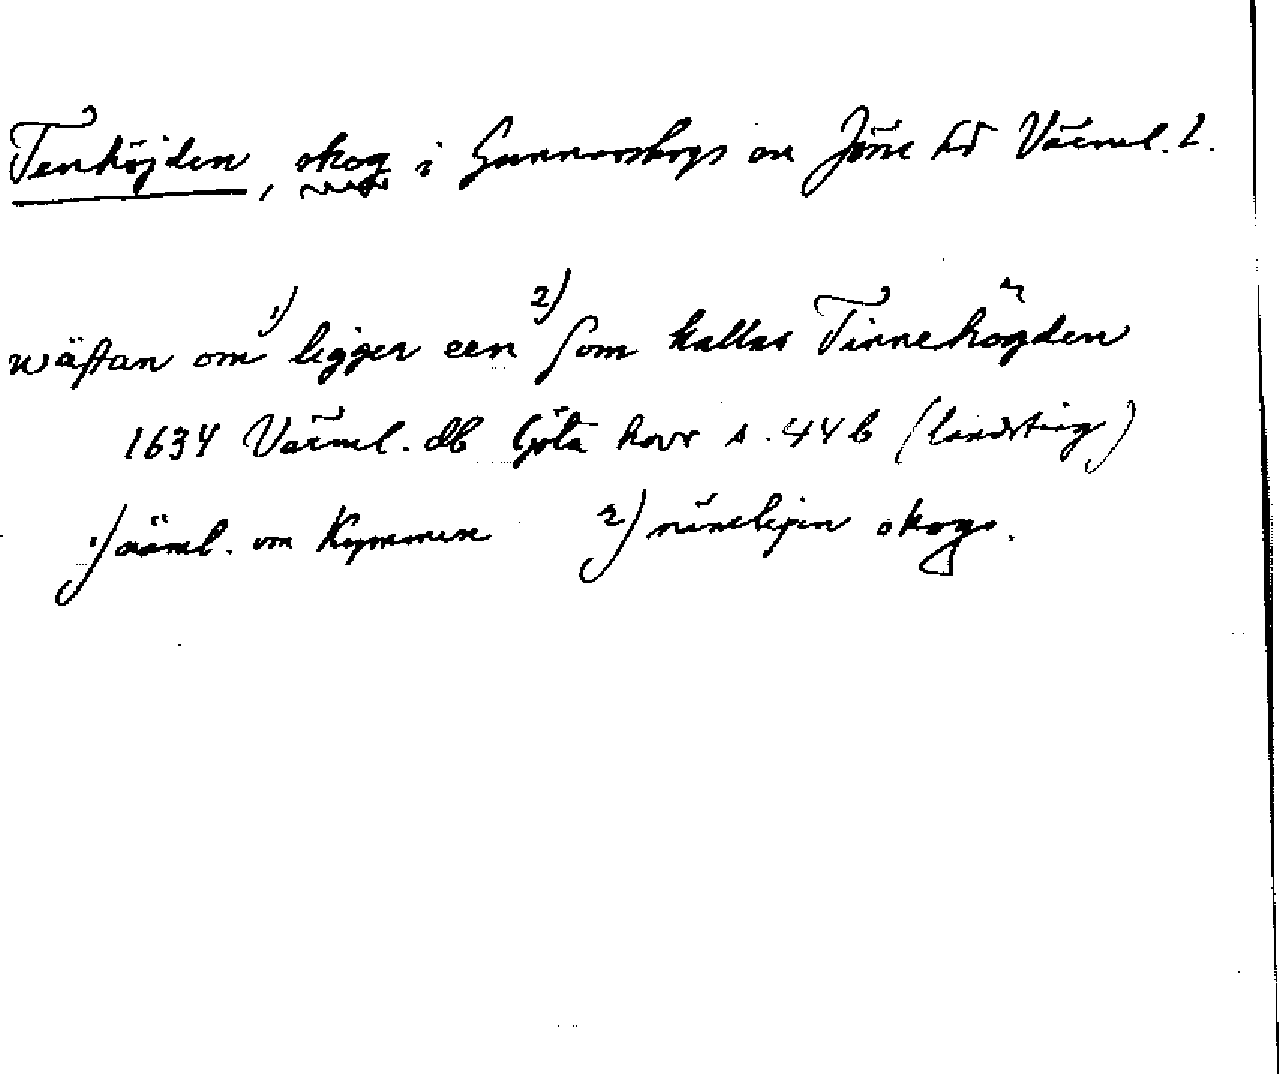 Tenhöjden, skog i Gunnarskogs sn Jösse hd Värml. L.
wästan om 1) ligger een 2) som kallas Tinnehögden
1634 Värml. db Göta hovr s. 44b (landsting)
1) näml. om Kymmen 2) nämligen skog.